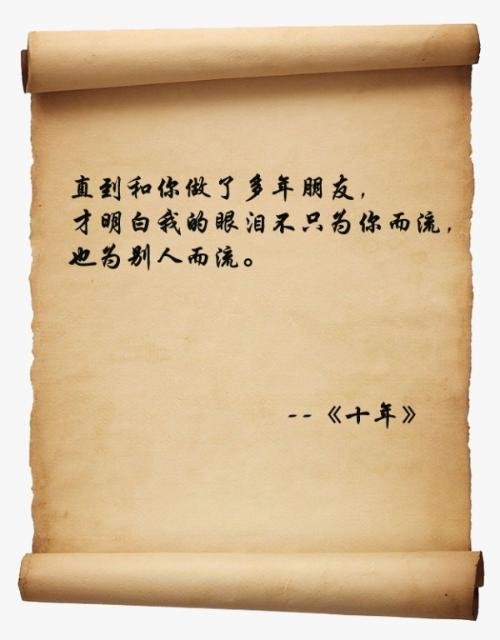 直到和你做了多年朋友，
才明白我的眼泪不只为你而流，
也为别人而流。
--《十年》